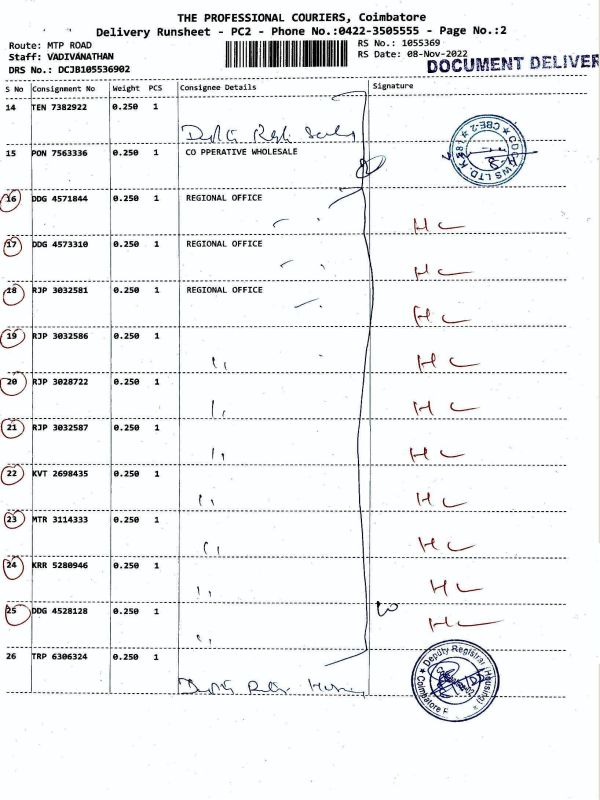 THE PROFESSIONAL COURIERS, Coimbatore
Delivery Runsheet - PC2 - Phone No.:0422-3505555 - Page No.:2
Route: MTP ROAD
RS No.: 1055369
Staff: VADIVANATHAN
RS Date: 08-Nov-2022
DRS No.: DCJB105536902
DOCUMENT DELIVER
S No Consignment No Weight PCS Consignee Details Signature
14 TEN 7382922 0.250 1
15 PON 7563336 0.250 1 CO PPERATIVE WHOLESALE
16 DDG 4571844 0.250 1 REGIONAL OFFICE
H C
17 DDG 4573310 0.250 1 REGIONAL OFFICE
H C
18 RJP 3032581 0.250 1 REGIONAL OFFICE
H C
19 RJP 3032586 0.250 1 ,, H C
20 RJP 3028722 0.250 1 ,, H C
21 RJP 3032587 0.250 1 ,, H C
22 KVT 2698435 0.250 1 ,, H C
23 MTR 3114333 0.250 1 ,, H C
24 KRR 5280946 0.250 1 ,, H C
25 DDG 4528128 0.250 1 ,, H C
26 TRP 6306324 0.250 1
Deputy Registrar (Housing)
Coimbatore